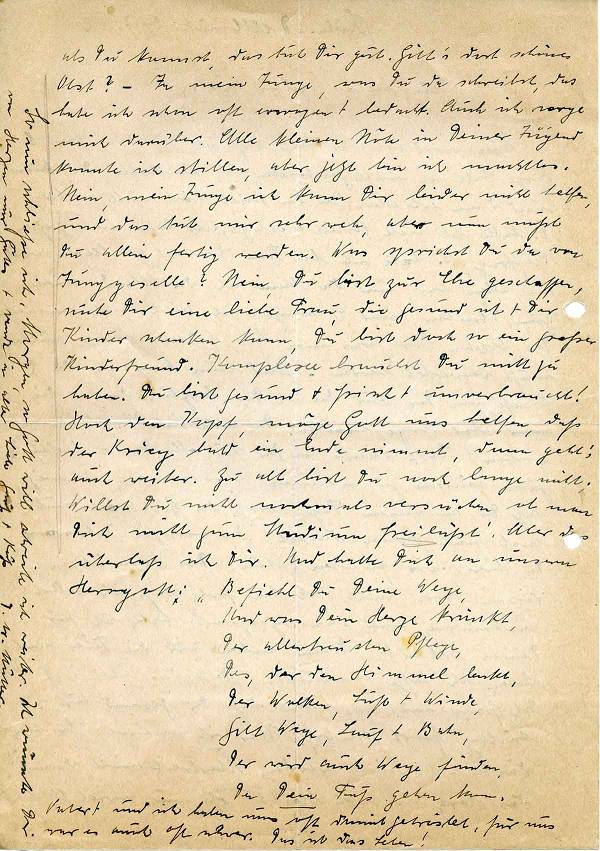 als Du kannst, das tut Dir gut. Gibt's dort schönes
Obst? – Ja mein Junge, was Du da schreibst, das
habe ich schon oft erwogen + bedacht. Auch ich sorge
mich darüber. Alle kleinen Nöte in Deiner Jugend
konnte ich stillen, aber jetzt bin ich machtlos.
Nein, mein Junge ich kann Dir leider nicht helfen,
und das tut mir sehr weh, aber nun mußt
Du allein fertig werden. Was sprichst Du da von
Junggeselle? Nein, Du bist zur Ehe geschaffen,
suche Dir eine liebe Frau, die gesund ist + Dir
Kinder schenken kann, Du bist doch so ein großer
Kinderfreund. Komplexe brauchst Du nicht zu
haben. Du bist gesund + frisch + unverbraucht!
Hoch den Kopf, möge Gott uns helfen, daß
der Krieg bald ein Ende nimmt, dann geht's
auch weiter. Zu alt bist Du noch lange nicht.
Willst Du nicht nochmals versuchen ob man
Dich nicht zum Studium freiläßt? Aber das
überlaß ich Dir. Und halte Dich an unsern
Herrgott: „Befiehl Du Deine Wege,
Und was Dein Herze kränkt,
Der allertreusten Pflege,
Des, der den Himmel lenkt,
Der Wolken, Luft + Winde,
Gibt Wege, Lauf + Bahn,
Der wird auch Wege finden,
Da Dein Fuß gehen kann.
Vater + und ich haben uns oft damit getröstet, für uns
war es auch oft schwer. Das ist das Leben!
So nun schließe ich, Morgen, so Gott will schreibe ich weiter. Ich wünsche Dir
von Herzen nur Gutes +